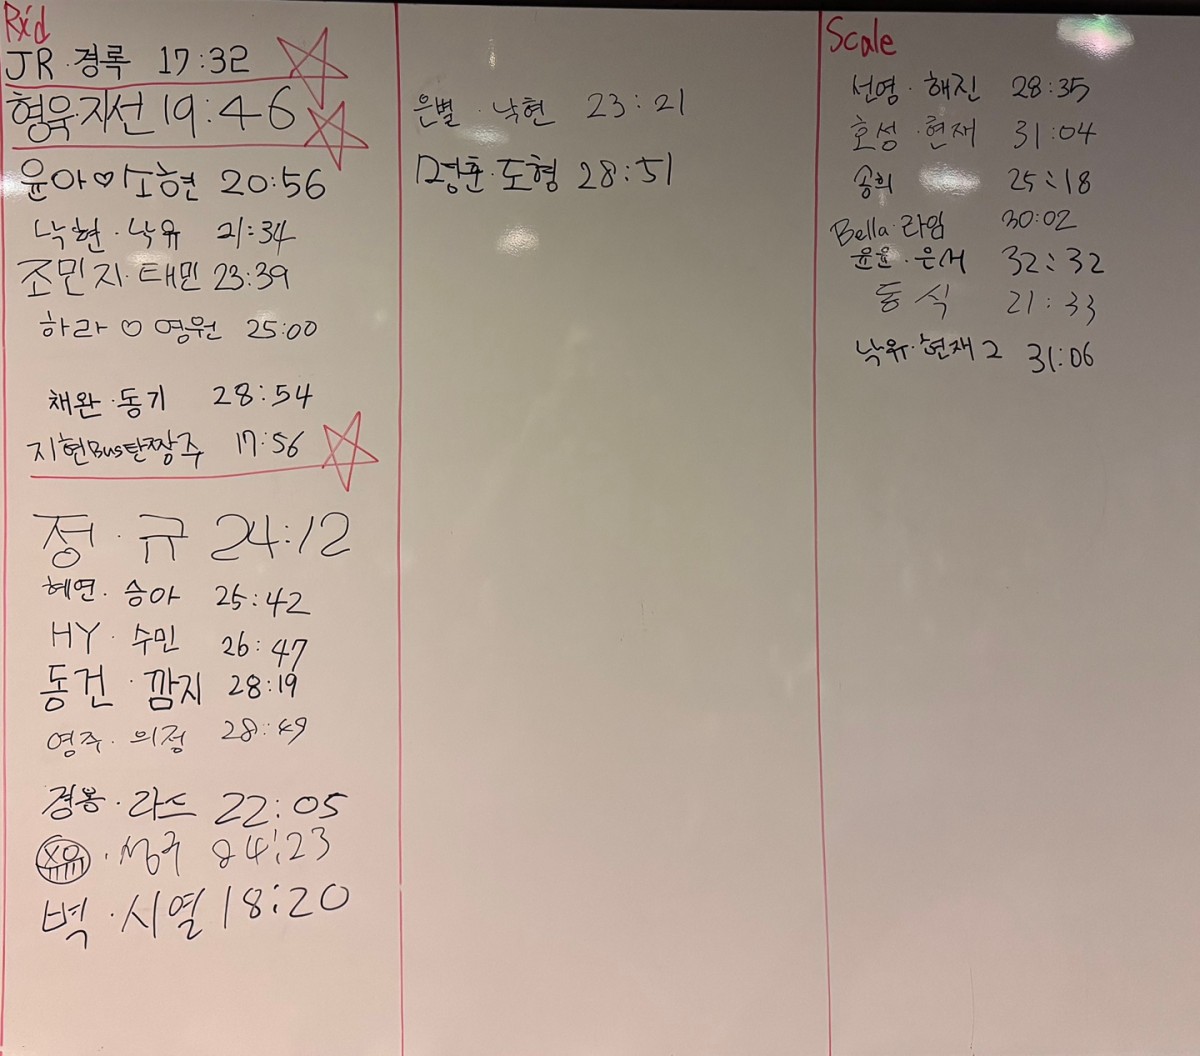 Rx'd
JR·경록 17:32
형욱·지선 19:46
윤아♡소현 20:56
낙현·낙유 21:34
조민지·태민 23:39
하라♡영원 25:00
채완·동기 28:54
지현Bus탄짱주 17:56
정·규 24:12
혜연·승아 25:42
HY·수민 26:47
동건·깜지 28:19
영주·의정 28:49
경봉·라드 22:05
·성구 24:23
벽·시열 18:20
은별·낙현 23:21
명훈·도형 28:51
Scale
선영·해진 28:35
호성·현재 31:04
송희 25:18
Bella·라임 30:02
윤윤·은서 32:32
동식 21:33
낙유·현재2 31:06